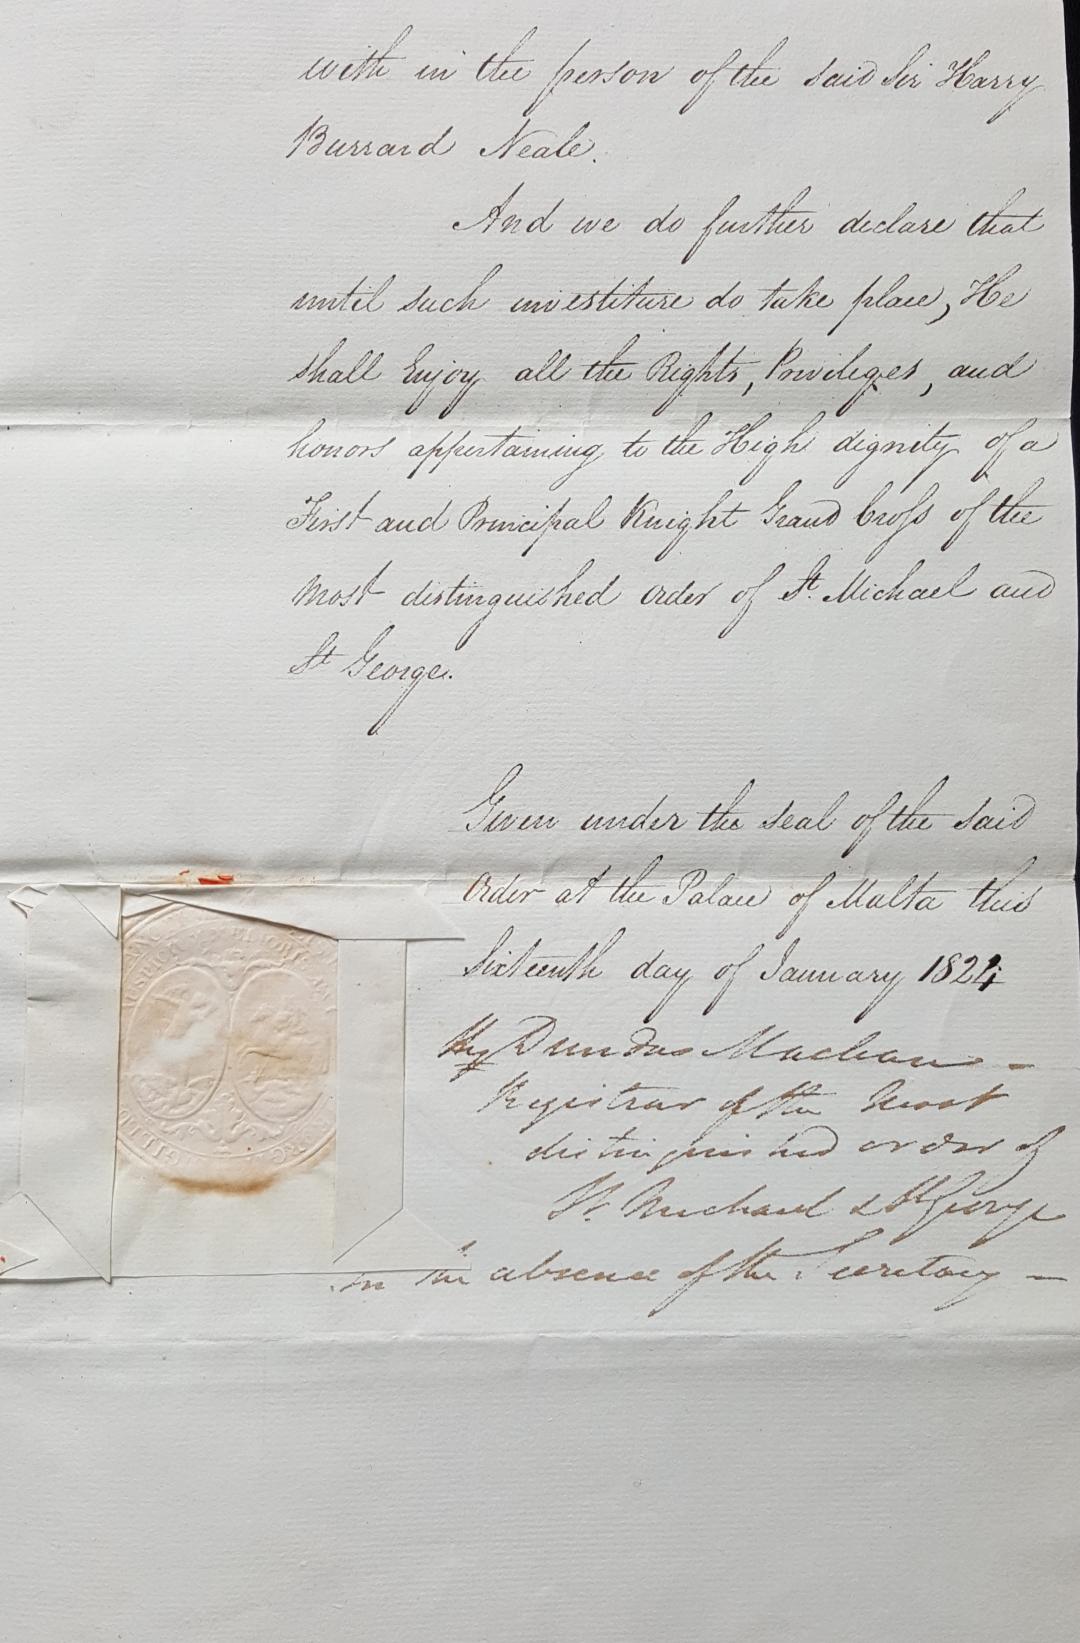 with in the person of the said Sir Harry
Burrard Neale.
And we do further declare that
until such investiture do take place, He
shall Enjoy all the Rights, Privileges, and
honors appertaining to the High dignity of a
First and Principal Knight Grand Cross of the
most distinguished order of St. Michael and
St George.
Given under the seal of the said
Order at the Palace of Malta this
Sixteenth day of January 1824
Hy Dundas Maclean -
Registrar of the Most
distinguished order of
St. Michael & St George
in the absence of the Secretary -
AUSPICIUM MELIORIS